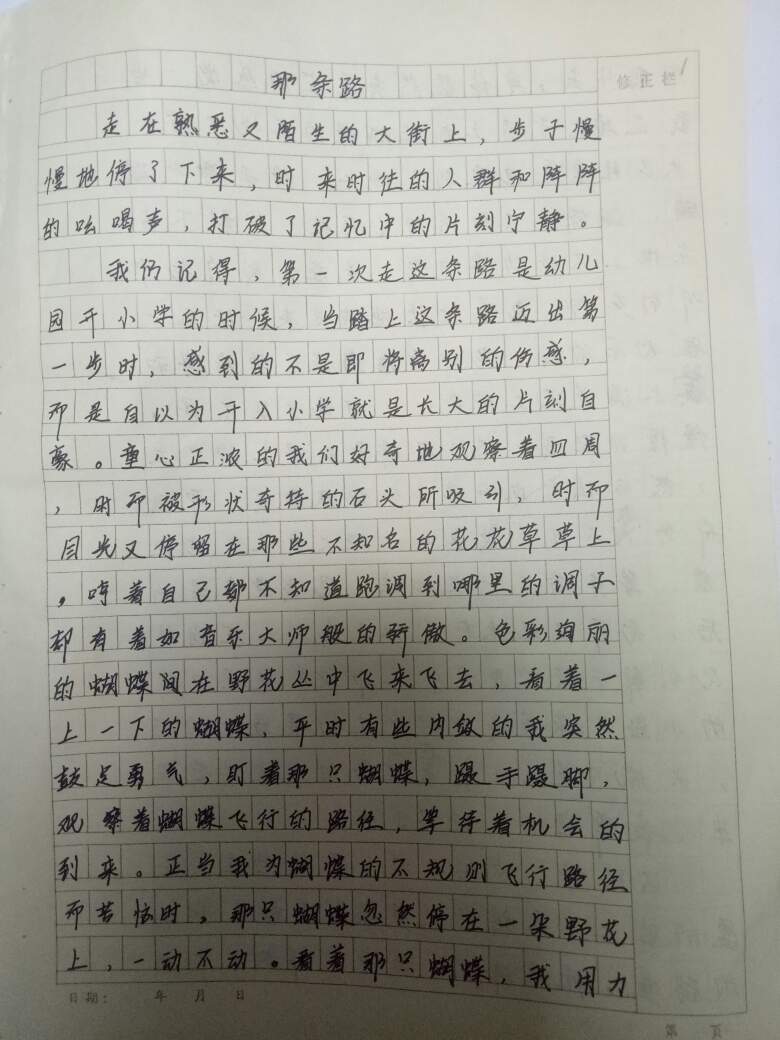 那条路
修正栏
走在熟悉又陌生的大街上，步子慢
慢地停了下来，时来时往的人群和阵阵
的吆喝声，打破了记忆中的片刻宁静。
我仍记得，第一次走这条路是幼儿
园升小学的时候，当踏上这条路迈出第
一步时，感到的不是即将离别的伤感，
而是自以为升入小学就是长大的片刻自
豪。童心正浓的我们好奇地观察着四周
，时而被形状奇特的石头所吸引，时而
目光又停留在那些不知名的花花草草上
。哼着自己都不知道跑调到哪里的调子
却有着如音乐大师般的骄傲。色彩绚丽
的蝴蝶间在野花丛中飞来飞去，看着一
上一下的蝴蝶，平时有些内敛的我突然
鼓足勇气，盯着那只蝴蝶，蹑手蹑脚，
观察着蝴蝶飞行的路径，等待着机会的
到来。正当我为蝴蝶的不规则飞行路径
而苦恼时，那只蝴蝶忽然停在一朵野花
上，一动不动。看着那只蝴蝶，我用力
日期： 年 月 日
第 页